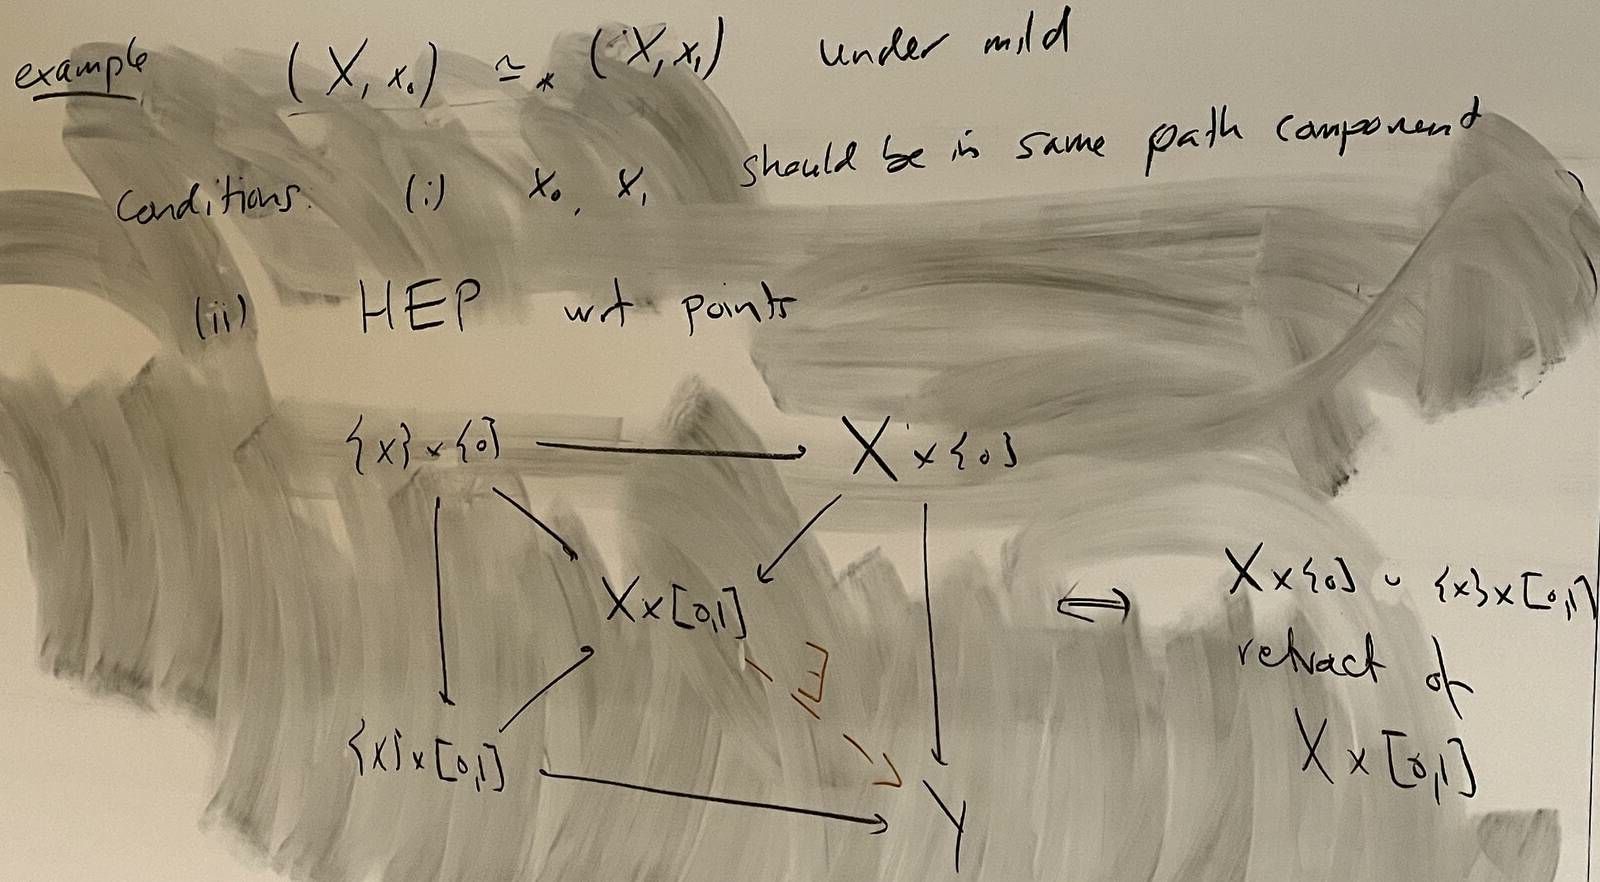 example (X, x₀) ≃* (X, x₁) under mild
conditions. (i) x₀, x₁ should be in same path component
(ii) HEP wrt points
{x} × {0} → X × {0}
X × [0,1] ⇔ X × {0} ∪ {x} × [0,1]
∃ retract of
{x} × [0,1] X × [0,1]
Y